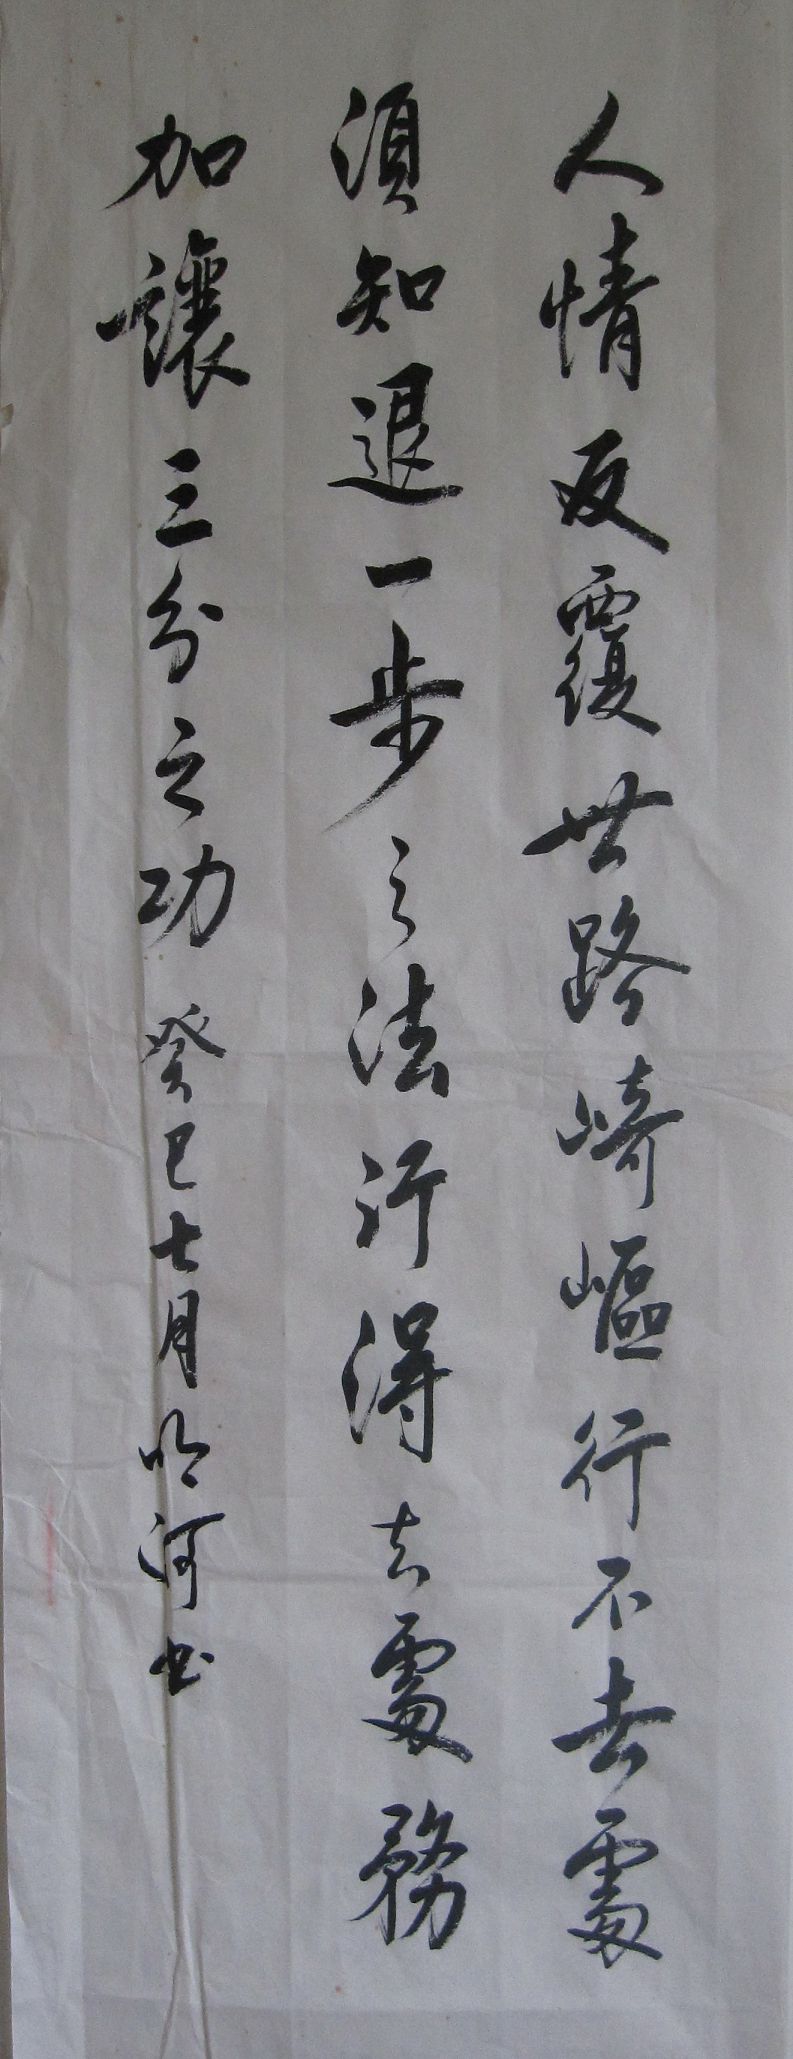 人情反覆世路崎嶇行不去處
須知退一步之法行得去處務
加讓三分之功 癸巳七月 明河书